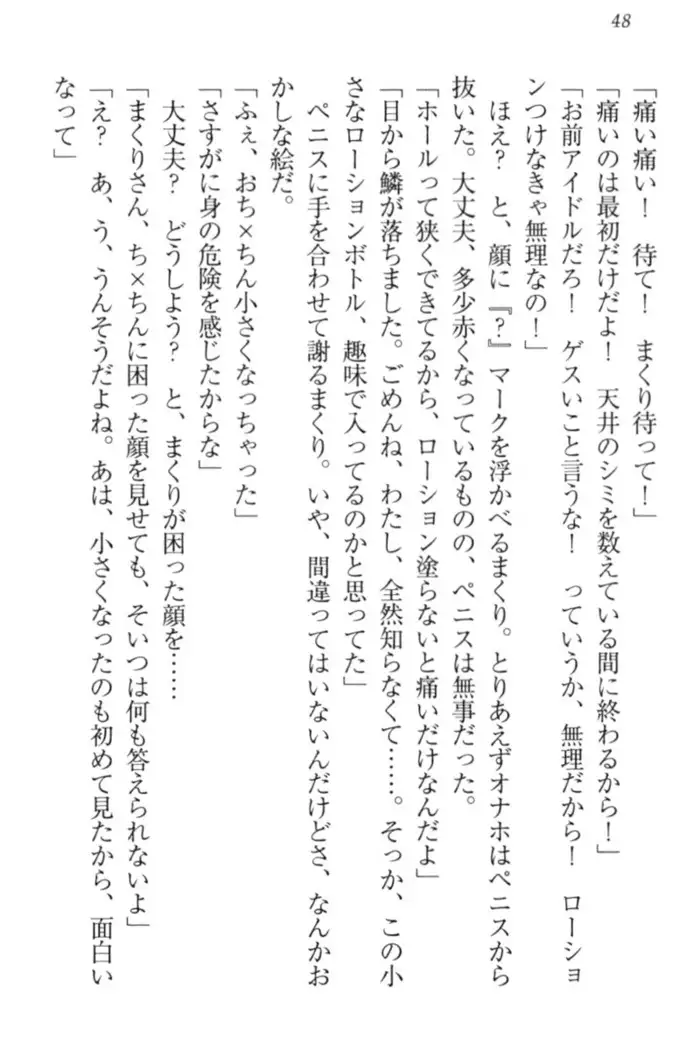 48
「痛い痛い！　待て！　まくり待って！」
「痛いのは最初だけだよ！　天井のシミを数えている間に終わるから！」
「お前アイドルだろ！　ゲスいこと言うな！　っていうか、無理だから！　ローショ
ンつけなきゃ無理なの！」
　ほえ？　と、顔に『？』マークを浮かべるまくり。とりあえずオナホはペニスから
抜いた。大丈夫、多少赤くなっているものの、ペニスは無事だった。
「ホールって狭くできてるから、ローション塗らないと痛いだけなんだよ」
「目から鱗が落ちました。ごめんね、わたし、全然知らなくて……。そっか、この小
さなローションボトル、趣味で入ってるのかと思ってた」
　ペニスに手を合わせて謝るまくり。いや、間違ってはいないんだけどさ、なんかお
かしな絵だ。
「ふぇ、おち×ちん小さくなっちゃった」
「さすがに身の危険を感じたからな」
　大丈夫？　どうしよう？　と、まくりが困った顔を……
「まくりさん、ち×ちんに困った顔を見せても、そいつは何も答えられないよ」
「え？　あ、う、うんそうだよね。あは、小さくなったのも初めて見たから、面白い
なって」